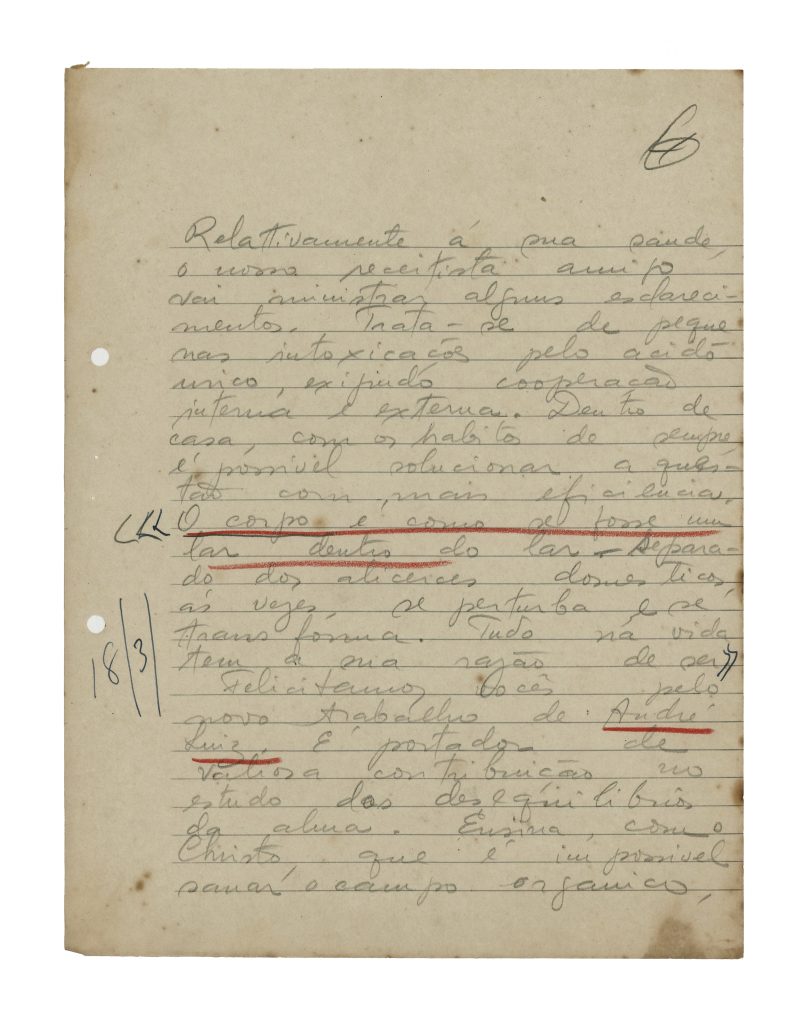 6
Relattivamente á sua saude,
o nosso receitista amigo
vai ministrar alguns esclareci-
mentos. Trata-se de peque
nas intoxicações pelo acido
urico, exigindo cooperação
interna e externa. Dentro de
casa, com os habitos de sempre
é possivel solucionar a ques-
tão com mais eficiencia.
O corpo é como se fosse um
lar dentro do lar - Separa-
do dos alicerces domesticos,
ás vezes, se perturba e se
transfórma. Tudo na vida
tem a sua razão de ser »
18/3/
Felicitamos vocês pelo
novo trabalho de André
Luiz. É portador de
valiosa contribuição no
estudo dos desequilibrios
da alma. Ensina, com o
Christo, que é impossivel
sanar o campo organico,